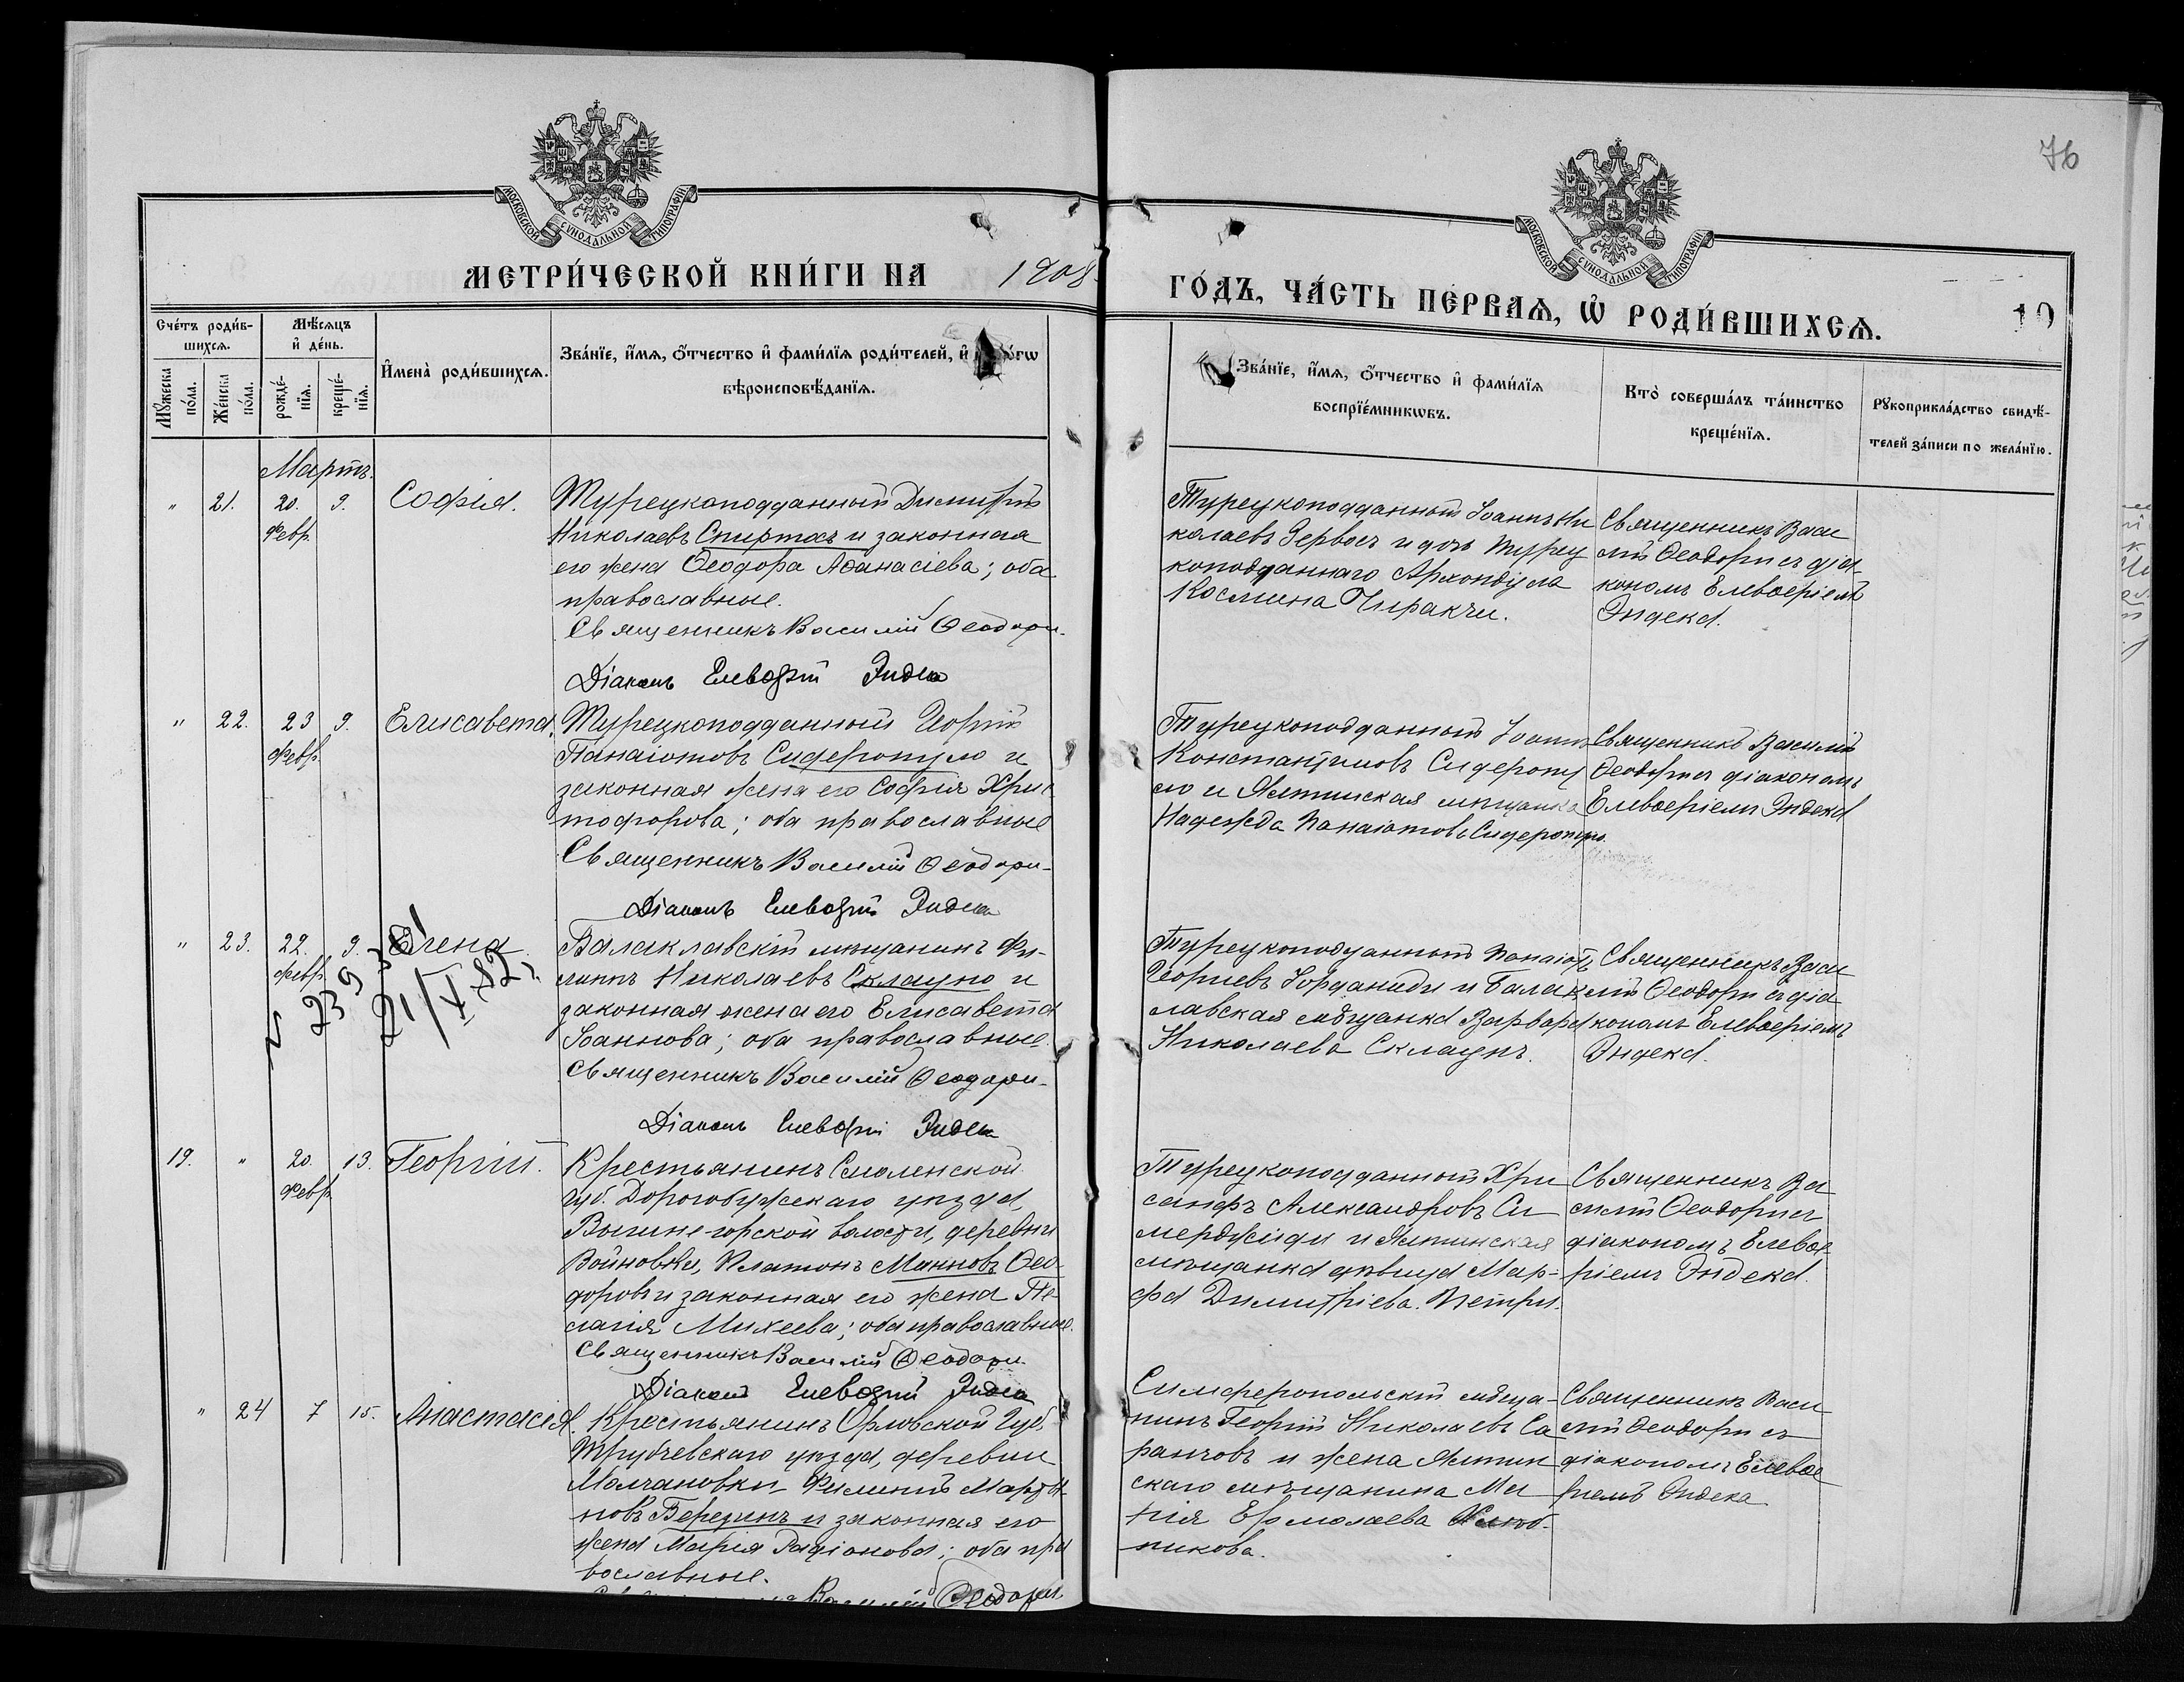 76
МОСКОВСКОЙ СѴНОДАЛЬНОЙ ТИПОГРАФІИ
МОСКОВСКОЙ СѴНОДАЛЬНОЙ ТИПОГРАФІИ
МЕТРИ́ЧЕСКОЙ КНИ́ГИ НА 1908
ГО́ДЪ, ЧА́СТЬ ПЕ́РВАѦ, Ѡ РОДИ́ВШИХСѦ.
10
Сче́тъ роди́в-
шихсѧ.
Мꙋ́жеска по́ла.
Же́нска по́ла.
Мѣ́сѧцъ
и де́нь.
рожде́-
нїѧ.
креще́-
нїѧ.
И҆мена̀ роди́вшихсѧ.
Зва́нїе, и҆́мѧ, ѻ҆́тчество и҆ фами́лїѧ роди́телей, и҆
вѣроисповѣ́данїѧ.
Зва́нїе, и҆́мѧ, ѻ҆́тчество и҆ фами́лїѧ
воспрїе́мникѡвъ.
Кто̀ соверша́лъ та́инство
креще́нїѧ.
Рꙋкоприкла́дство свидѣ́-
телей за́писи по жела́нїю.
Мартъ.
" 21. 20. 9. Софія.
Февр.
Турецкоподданный Димитрій
Николаевъ Спиртосъ и законная
его жена Ѳеодора Аѳанасіева; оба
православные.
Священникъ Василій Ѳеодори
Діаконъ Елевѳерій Эндека
Турецкоподданный Іоаннъ Ни
колаевъ Зервосъ и дочь турец
коподданнаго Архондула
Космина Чиракчи.
Священникъ Васи
лій Ѳеодори съ діа
кономъ Елевѳеріемъ
Эндека.
" 22. 23 9. Елисавета.
Февр.
Турецкоподданный Георгій
Панаіотовъ Сидеропуло и
законная жена его Софія Хрис
тофорова; оба православные
Священникъ Василій Ѳеодори
Діаконъ Елевѳерій Эндека
Турецкоподданный Іоаннъ
Константиновъ Сидеропу
ло и Ялтинская мѣщанка
Надежда Панаіотовъ Сидеропуло.
Священникъ Василій
Ѳеодори съ діакономъ
Елевѳеріемъ Эндека
" 23. 22. 9. Елена
Февр.
239
21/V 82
Балаклавскій мѣщанинъ Фи-
липпъ Николаевъ Склаупо и
законная жена его Елисавета
Іоаннова; оба православные.
Священникъ Василій Ѳеодори
Діаконъ Елевѳерій Эндека
Турецкоподданный Панаіотъ
Георгіевъ Іорданиди и Балак
лавская мѣщанка Варвара
Николаева Склаупъ.
Священникъ Васи
лій Ѳеодори съ діа
кономъ Елевѳеріемъ
Эндека.
19. " 20. 13. Георгій.
Февр.
Крестьянинъ Смоленской
Губ. Дорогобужскаго уѣзда,
волости, деревни
Войновки, Платонъ Минновъ Ѳео-
доровъ и законная его жена Пе-
лагія Михеева; оба православные.
Священникъ Василій Ѳеодори
Діаконъ Елевѳерій Эндека
Турецкоподданный Хри
санфъ Александровъ Си
мерджиди и Ялтинская
мѣщанка дѣвица Мар-
фа Димитріева Петри.
Священникъ Ва
силій Ѳеодори съ
діакономъ Елевѳе-
ріемъ Эндека.
" 24 7 15. Анастасія.
Крестьянинъ Орловской Губ.
Трубчевскаго уѣзда, деревни
Молчановки Филиппъ Марты
новъ Березинъ и законная его
жена Марія Радіонова; оба пра
вославные.
Василій Ѳеодори
Симферопольскій мѣща-
нинъ Георгій Николаевъ Са
ранчовъ и жена Ялтин
скаго мѣщанина Ма
рія Ермолаева Хлѣб-
никова.
Священникъ Васи
лій Ѳеодори съ
діакономъ Елевѳе
ріемъ Эндека